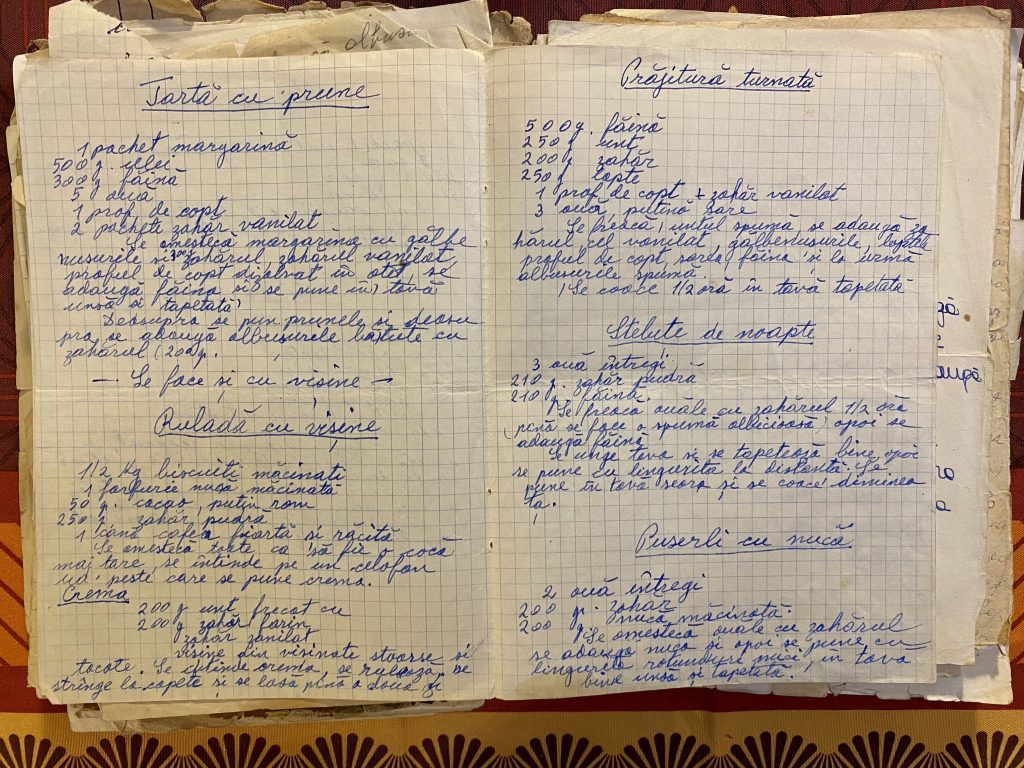 Tartă cu prune
1 pachet margarină
500 g. ulei
300 g făină
5 ouă
1 praf de copt
2 pachete zahăr vanilat
Se amestecă margarina cu gălbe
nușurile și 300g zahărul, zahărul vanilat,
praful de copt dizolvat în oțet, se
adaugă făina și se pune în tavă
unsă și tapetată
Deasupra se pun prunele și deasu-
pra se adaugă albușurile bătute cu
zahărul (200 g.
— Se face și cu vișine —
Ruladă cu vișine
1/2 Kg biscuiți măcinați
1 farfurie nucă măcinată
50 g. cacao, puțin rom
250 g zahăr pudră
1 cană cafea fiartă și răcită
Se amestecă toate ca să fie o cocă
mai tare, se întinde pe un celofan
ud peste care se pune crema.
Crema
200 g unt frecat cu
200 g zahăr farin
zahăr vanilat
Vișine din vișinate stoarse și
tocate. Se întinde crema, se rulează, se
strînge la capete și se lasă pînă a doua zi
Prăjitură turnată
500 g. făină
250 g unt
200 g zahăr
250 g lapte
1 praf de copt + zahăr vanilat
3 ouă, puțină sare
Se freacă untul spumă, se adaugă za
hărul cel vanilat, gălbenușurile, laptele
praful de copt, sarea, făina și la urmă
albușurile spumă.
Se coace 1/2 oră în tavă tapetată
Steluțe de noapte
3 ouă întregi
210 g. zahăr pudră
210 g. făină.
Se freacă ouăle cu zahărul 1/2 oră
(pînă se face o spumă albicioasă) apoi se
adaugă făină
Se unge tava și se tapetează bine, apoi
se pune cu lingurița la distanță. Se
pune în tavă seara și se coace dimінea
ța.
Puserli cu nucă
2 ouă întregi
200 gr. zahăr
200 g. nucă măcinată.
Se amestecă ouăle cu zahărul
se adaugă nuca și apoi se pune cu
lingurița rotunduri mici, în tava
bine unsă și tapetată.